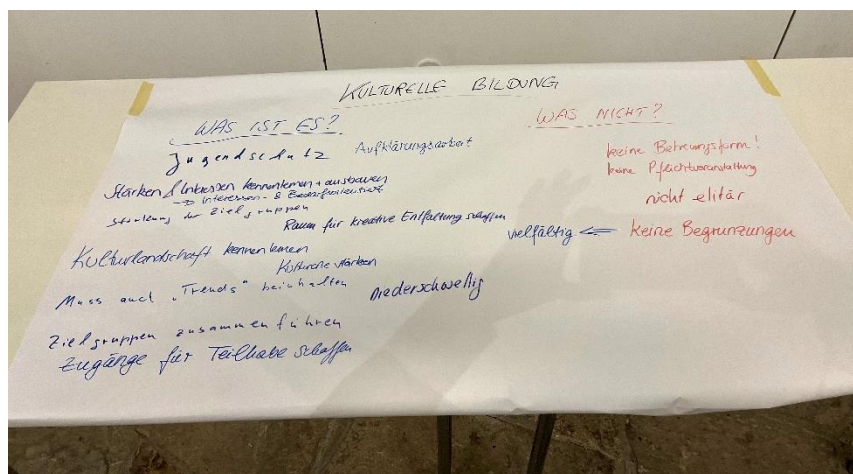 KULTURELLE BILDUNG
WAS IST ES?
Jugendschutz
Aufklärungsarbeit
Stärken & Interessen kennenlernen + ausbauen
→ Interessen- & Bedarfsorientiert
Stärkung der Zielgruppen
Raum für kreative Entfaltung schaffen
Kulturlandschaft kennenlernen
stärken
Muss auch „Trends" beinhalten
niederschwellig
Zielgruppen zusammenführen
Zugänge für Teilhabe schaffen
WAS NICHT?
keine Betreuungsform!
keine Pflichtveranstaltung
nicht elitär
vielfältig ⇐ keine Begrenzungen